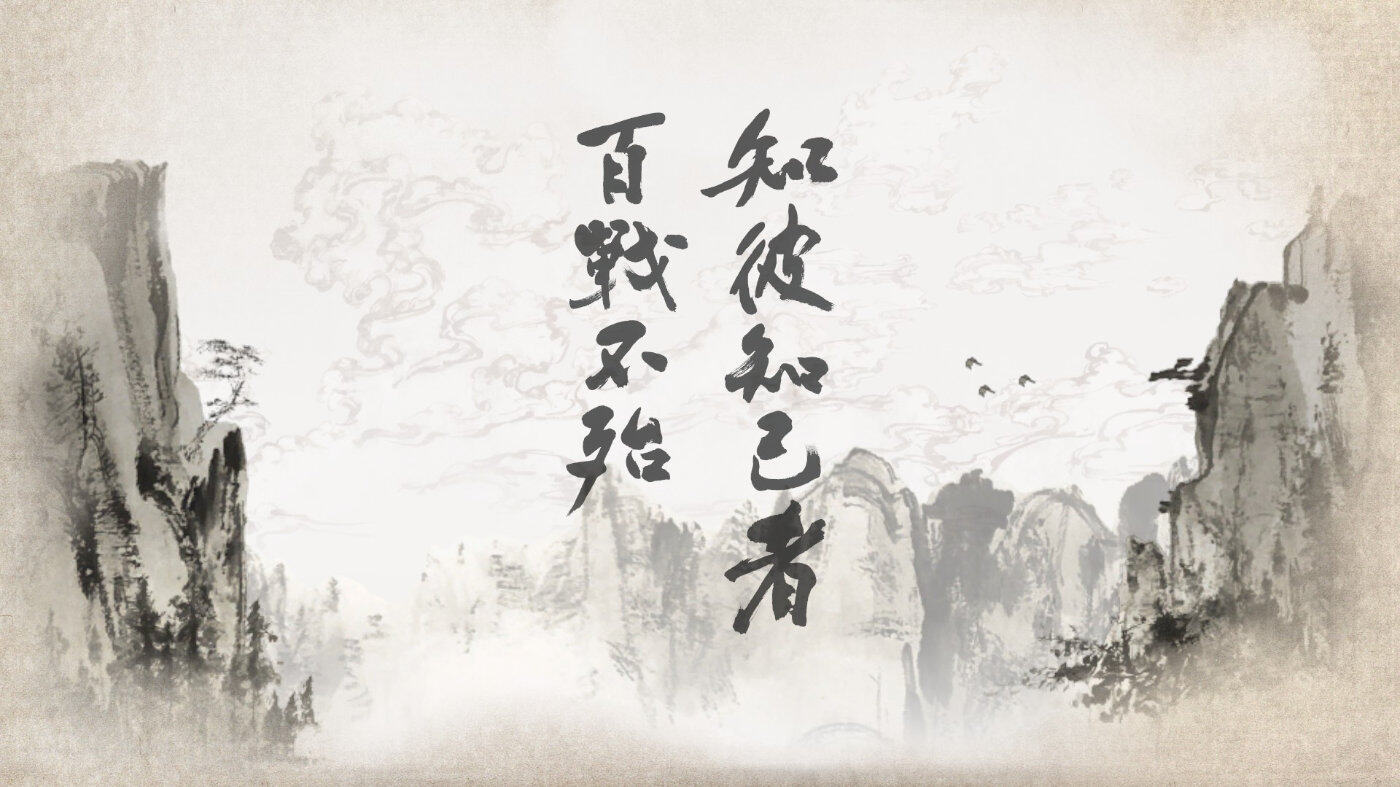 知彼知己者
百戰不殆